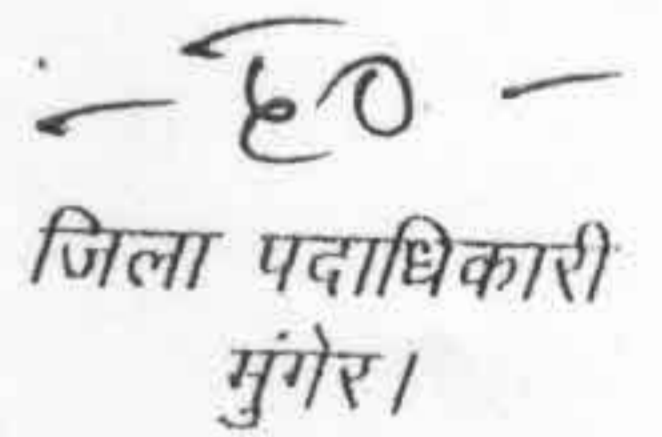 — ह० —
जिला पदाधिकारी
मुंगेर।